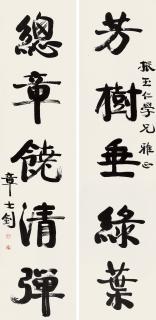 芳樹垂綠葉
振玉仁學兄雅正
總章饒清彈
章士釗